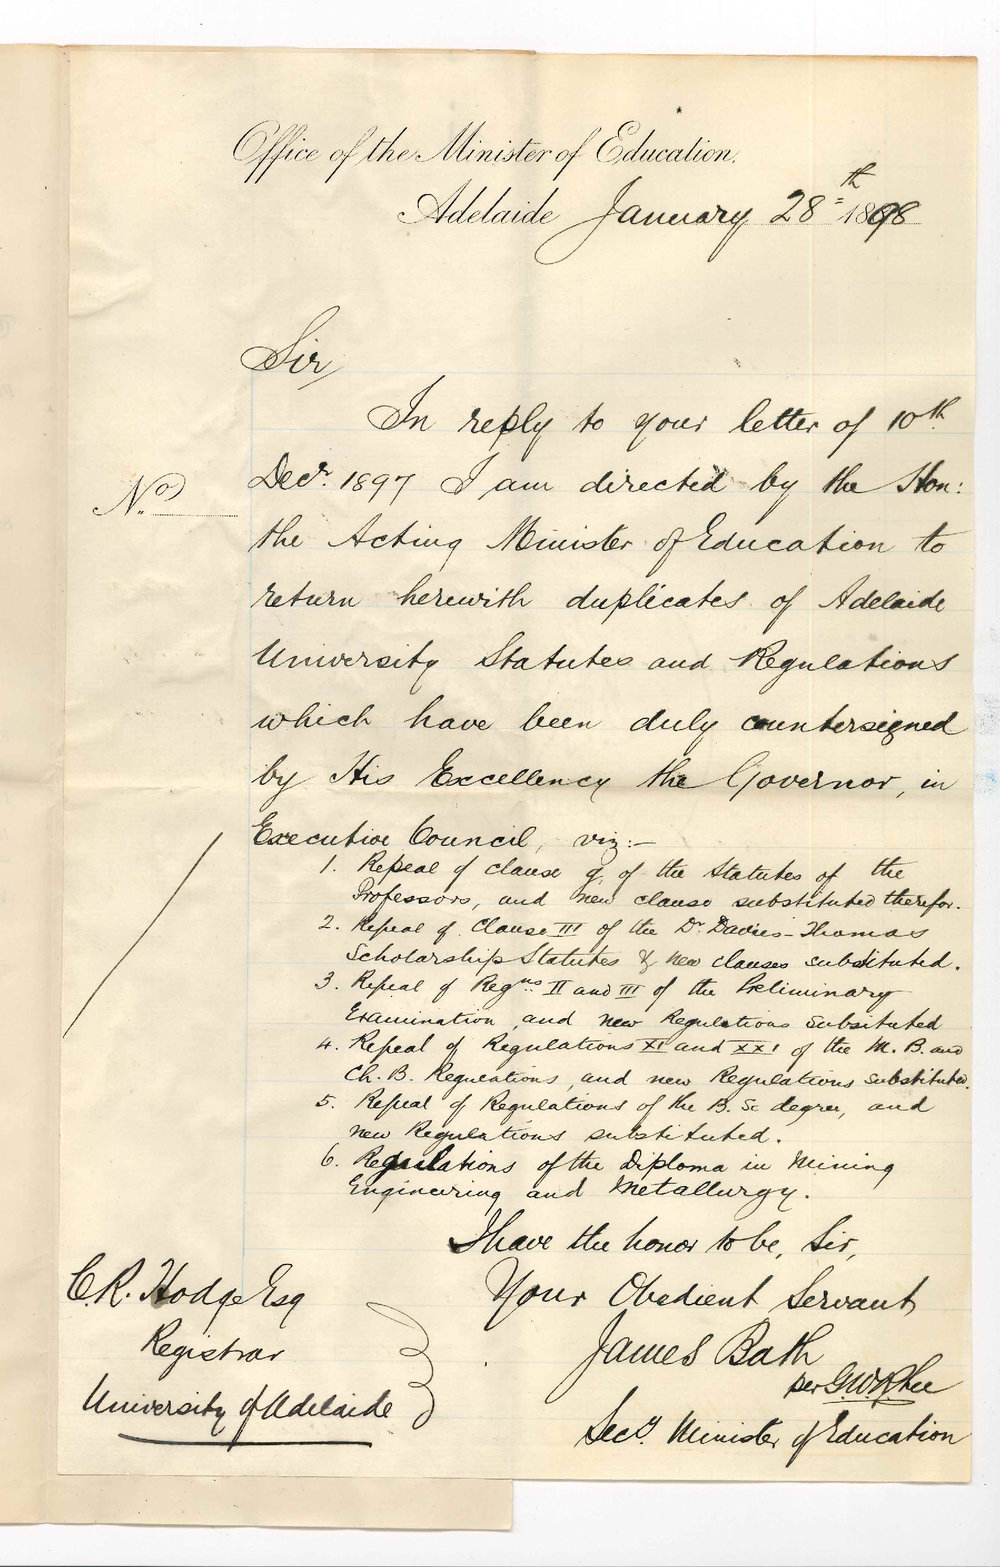 Office of the Minister of Education.
Adelaide January 28th 1898
Sir,
In reply to your letter of 10th
Decr. 1897 I am directed by the Hon:
No.
the Acting Minister of Education to
return herewith duplicates of Adelaide
University Statutes and Regulations
which have been duly countersigned
by His Excellency the Governor, in
Executive Council, viz:-
1. Repeal of clause g. of the Statutes of the
Professors, and new clause substituted therefor.
2. Repeal of Clause III of the Dr. Davies-Thomas
Scholarship Statutes & new clauses substituted.
3. Repeal of Regns. II and III of the Preliminary
Examination, and new Regulations Subsituted
4. Repeal of Regulations XI and XXI of the M. B. and
Ch. B. Regulations, and new Regulations substituted.
5. Repeal of Regulations of the B. Sc degree, and
new Regulations substituted.
6. Regulations of the Diploma in Mining
Engineering and Metallurgy.
I have the honor to be, Sir,
Your Obedient Servant
James Bath
per G.W.
Secy. Minister of Education
C.R. Hodge Esq
Registrar
University of Adelaide